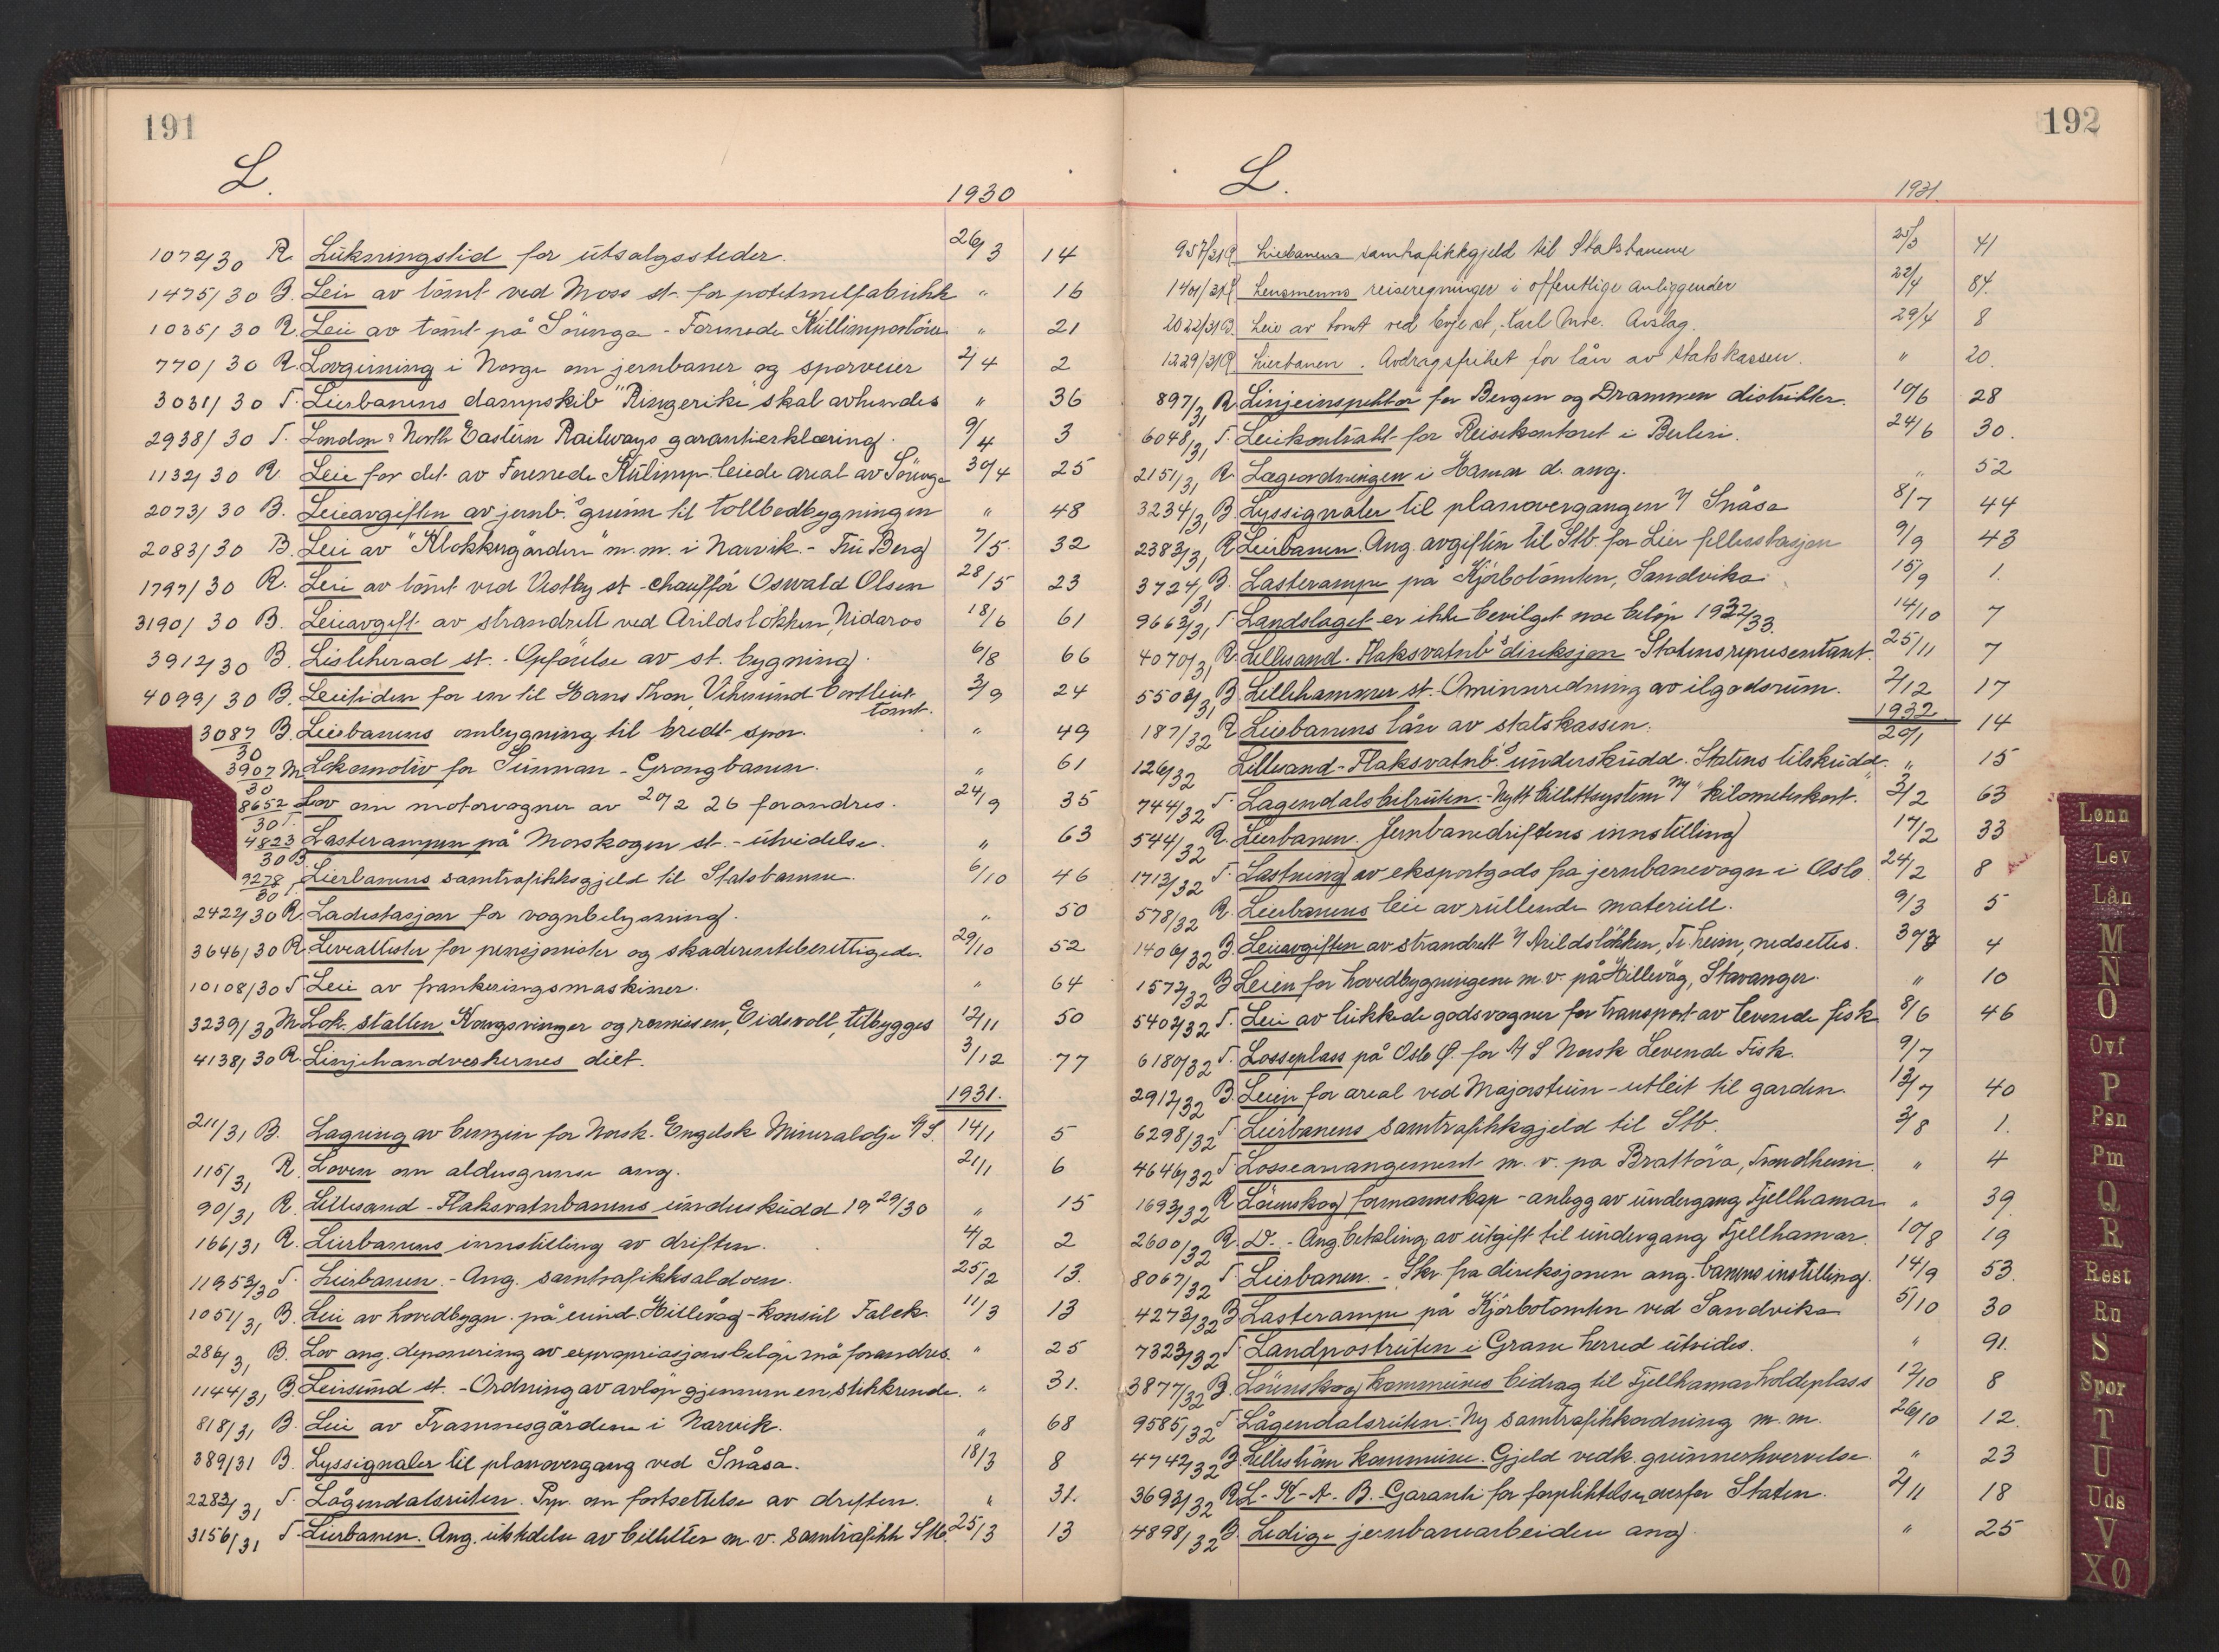 191
L.
1930
1072/30 R. Lukningstid for utsalgssteder. 26/3 14
1475/30 B. Leie av tomt ved Moss st. for potetmelfabrikk " 16
1035/30 R. Leie av tomt på Sörenga - Forenede Kullimportörer " 21
770/30 R. Lovgivning i Norge om jernbaner og sporveier 2/4 2
3031/30 T. Lierbanens dampskib "Ringerike" skal avhendes " 36
2938/30 T. London & North Eastern Railways garantierklæring. 9/4 3
1132/30 R. Leie for det av Forenede Kulimp. leiede areal av Sörenga 30/4 25
2073/30 B. Leieavgiften av jernb.s grunn til tollbodbygningen " 48
2083/30 B. Leie av "Klokkergården" m.m. i Narvik. - Fru Berg 7/5 32
1797/30 R. Leie av tomt ved Vestby st - chauffór Oswald Olsen 28/5 23
3190/30 B. Leieavgift av strandrett ved Arildslökken, Nidaros 18/6 61
3912/30 B. Lisleherad st. - Opförelse av st. bygning. 6/8 66
4099/30 B. Leietiden for en til Hans Thon, Vikersund bortleiet tomt. 3/9 24
3087/30 B. Lierbanens ombygning til bredt spor. " 49
3907/30 M. Lokomotiv for Sunnan - Grongbanen. " 61
8652/30 T. Lov om motorvogner av 20/2 26 forandres. 24/9 35
4823/30 B. Lasterampen på Morskogen st. - utvidelse. " 63
9278/30 T. Lierbanens samtrafikksgjeld til Statsbanene. 6/10 46
2422/30 R. Ladestasjon for vognbelysning. " 50
3646/30 R. Leveattester for pensjonister og skaderenteberettigede. 29/10 52
10108/30 T. Leie av frankeringsmaskiner. " 64
3239/30 M. Lok. stallen, Kongsvinger og remisen, Eidsvoll, tilbygges 12/11 50
4138/30 R. Linjehandverkernes diet. 3/12 77
1931.
211/31 B. Lagring av benzin for Norsk-Engelsk Mineralolje A/S. 14/1 5
115/31 R. Loven om aldersgrense ang. 21/1 6
90/31 R. Lillesand - Flaksvatnbanens underskudd 19 29/30 " 15
166/31 R. Lierbanens innstilling av driften. 4/2 2
11953/30 T. Lierbanen. - Ang. samtrafikksaldoen. 25/2 13.
1051/31 B. Leie av hovedbygn. på eiend. Hillevåg - konsul Falck 11/3 13
286/31 B. Lov ang. deponering av expropriasjonsbeløp må forandres. " 25
1144/31 B. Leirsund st. - Ordning av avløp gjennem en stikkrende. " 31.
818/31 B. Leie av Framnesgården i Narvik. " 68
389/31 B. Lyssignaler til planovergang ved Snåsa. 18/3 8
2283/31 T. Lågendalsruten. Prp. om fortsettelse av driften. " 31.
3156/31 T. Lierbanen. Ang. utstedelse av billetter m.v. samtrafikk Stb. 25/3 13
192
L.
1931.
957/31 R. Lierbanens samtrafikkgjeld til Statsbanene 25/3 41
1401/31 R. Lensmenns reiseregninger i offentlige anliggender 22/4 84.
2022/31 B. Leie av tomt ved Evje st, Carl Omre. Avslag. 29/4 8
1229/31 R. Lierbanen. Avdragsfrihet for lån av statskassen. " 20.
897/31 R. Linjeinspektør for Bergen og Drammen distrikter. 10/6 28
6048/31 T. Leiekontrakt for Reisekontoret i Berlin. 24/6 30.
2151/31 R. Lægeordningen i Hamar d. ang. " 52
3234/31 B. Lyssignaler til planovergangen v/ Snåsa 8/7 44
2383/31 R. Lierbanen. Ang. avgiften til Stb. for Lier fellesstasjon 9/9 43
3724/31 B. Lasterampe på Kjørbotomten, Sandvika. 15/9 1.
9663/31 T. Landslaget er ikke bevilget noe beløp 1932/33. 14/10 7
4070/31 R. Lillesand-Flaksvatnb.s direksjon - Statens representant. 25/11 7
5508/31 B. Lillehammer st. Ominnredning av ilgodsrum. 2/12 17
1932
187/32 R. Lierbanens lån av statskassen. 20/1 14
126/32 Lillesand - Flaksvatnb.s underskudd. Statens tilskudd. " 15
744/32 T. Lagendals bilruten. - Nytt billettsystem m/ "kilometerkort." 3/2 63
544/32 R. Lierbanen. Jernbanedriftens innstilling 17/2 33
1713/32 T. Lastning av eksportgods fra jernbanevogn i Oslo 24/2 8
578/32 R. Lierbanens leie av rullende materiell. 9/3 5
1406/32 B. Leieavgiften av strandrett v/ Arildslökken, Tr.heim, nedsettes. 30/3 4
1572/32 B. Leien for hovedbygningene m.v. på Hillevåg, Stavanger. " 10
5402/32 T. Leie av lukkede godsvogner for transport av levende fisk 8/6 46
6180/32 T. Losseplass på Oslo Ø. for A/S Norsk Levende Fisk. 9/7
2912/32 B. Leien for areal ved Majorstuen - utleiet til garden. 13/7 40
6298/32 T. Lierbanens samtrafikkgjeld til Stb. 3/8 1.
4646/32 T. Lossearrangement m.v. på Brattöra, Trondheim. " 4
1693/32 R. Lörenskog formannskap - anlegg av undergang Fjellhamar " 39
2600/32 R. D. - Ang. betaling av utgift til undergang Fjellhamar. 10/8 19
8067/32 T. Lierbanen. - Skr. fra direksjonen ang. banens instilling. 14/9 53.
4273/32 B. Lasterampe på Kjørbotomten ved Sandvika 5/10 30
7323/32 T. Landpostruten i Grane herred utvides. " 91.
3877/32 B. Lörenskog kommunes bidrag til Fjellhamar holdeplass 12/10 8
9585/32 T. Lågendalsruten. - Ny samtrafikkordning m.m. 26/10 12.
4742/32 B. Lillestrøm kommune. Gjeld vedk. grunnerhvervelse " 23
3693/32 R. L-K-A-B. - Garanti for forpliktelser overfor Staten. 2/11 18
4898/32 B. Ledige jernbanearbeidere ang. " 25
Lønn
Lev
Lån
M
N
O
Ovf
P
Psn
Pm
Q
R
Rest
Ru
S
Spor
T
U
Uds
V
XØ